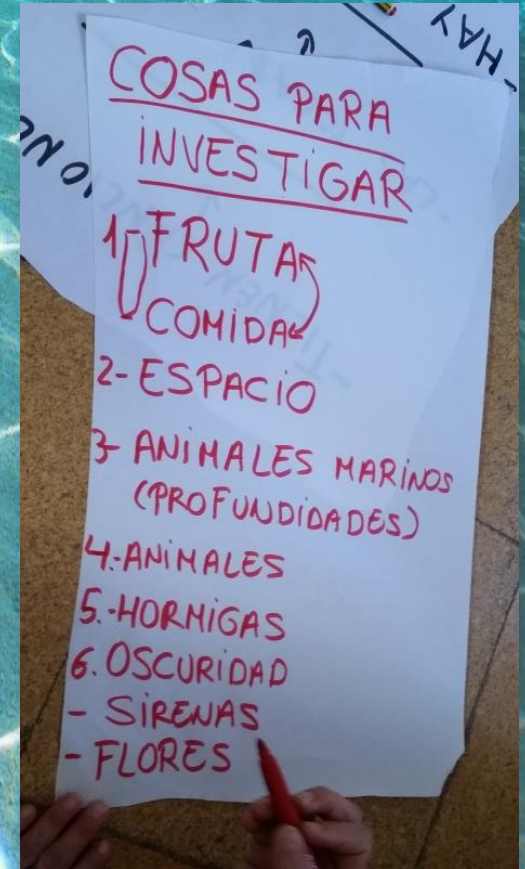 -HAY
COSAS PARA
INVESTIGAR
1-FRUTA
COMIDA
2-ESPACIO
3-ANIMALES MARINOS
(PROFUNDIDADES)
4.-ANIMALES
5.-HORMIGAS
6.OSCURIDAD
- SIRENAS
- FLORES